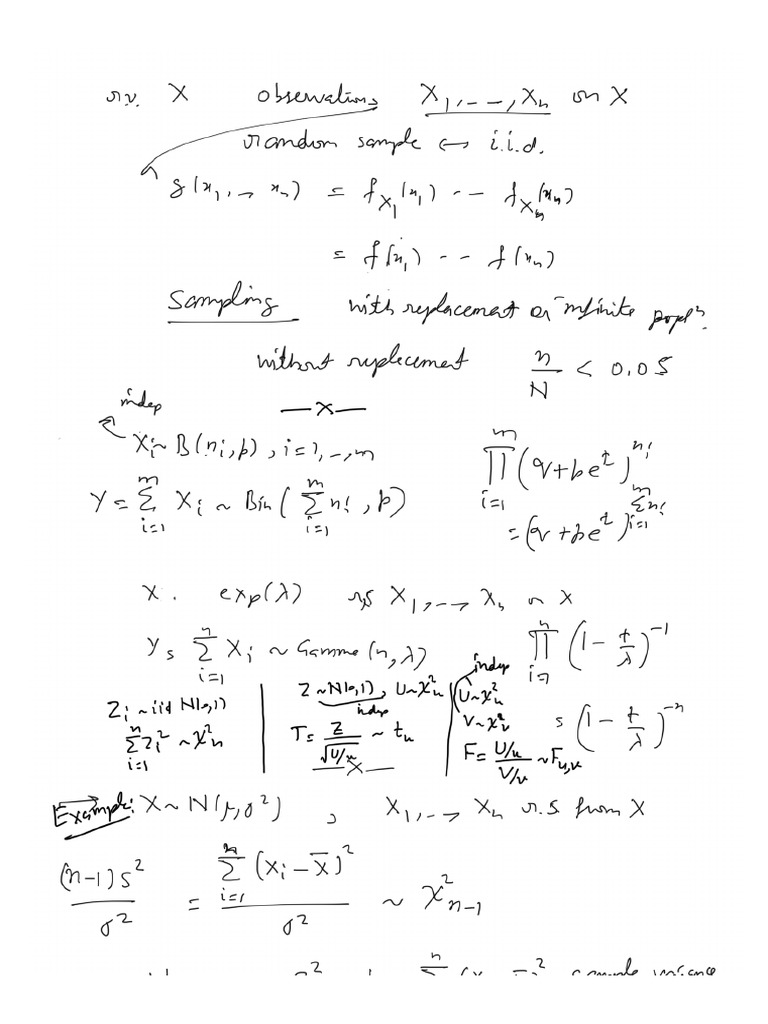 r.v. X observations X₁, --, Xₙ on X
random sample ↔ i.i.d.
g(x₁, → xₙ) = f_X₁(x₁) -- f_Xₙ(xₙ)
= f(x₁) -- f(xₙ)
Sampling with replacement or infinite popⁿ.
without replacement n/N < 0.05
—x—
indep
Xᵢ ~ B(nᵢ, p), i=1, -, m
∏_{i=1}^{m} (q+pe^t)^{nᵢ}
Y = ∑_{i=1}^{m} Xᵢ ~ Bin(∑_{i=1}^{m} nᵢ, p)
= (q+pe^t)^{∑_{i=1}^{m} nᵢ}
X . exp(λ) r.s X₁, -→ Xₙ on X
Y = ∑_{i=1}^{n} Xᵢ ~ Gamma(n, λ)
∏_{i=1}^{n} (1 - t/λ)^{-1}
= (1 - t/λ)^{-n}
Zᵢ ~ iid N(0,1)
∑_{i=1}^{n} Zᵢ² ~ χ²ₙ
Z ~ N(0,1), U ~ χ²_u
indep
T = Z/√(U/u) ~ t_u
indep
U ~ χ²_u
V ~ χ²_v
F = (U/u)/(V/v) ~ F_{u,v}
—X—
Example: X ~ N(μ, σ²) , X₁, -→ Xₙ r.s. from X
(n-1)s²/σ² = ∑_{i=1}^{n} (Xᵢ - X̄)²/σ² ~ χ²_{n-1}
sample variance